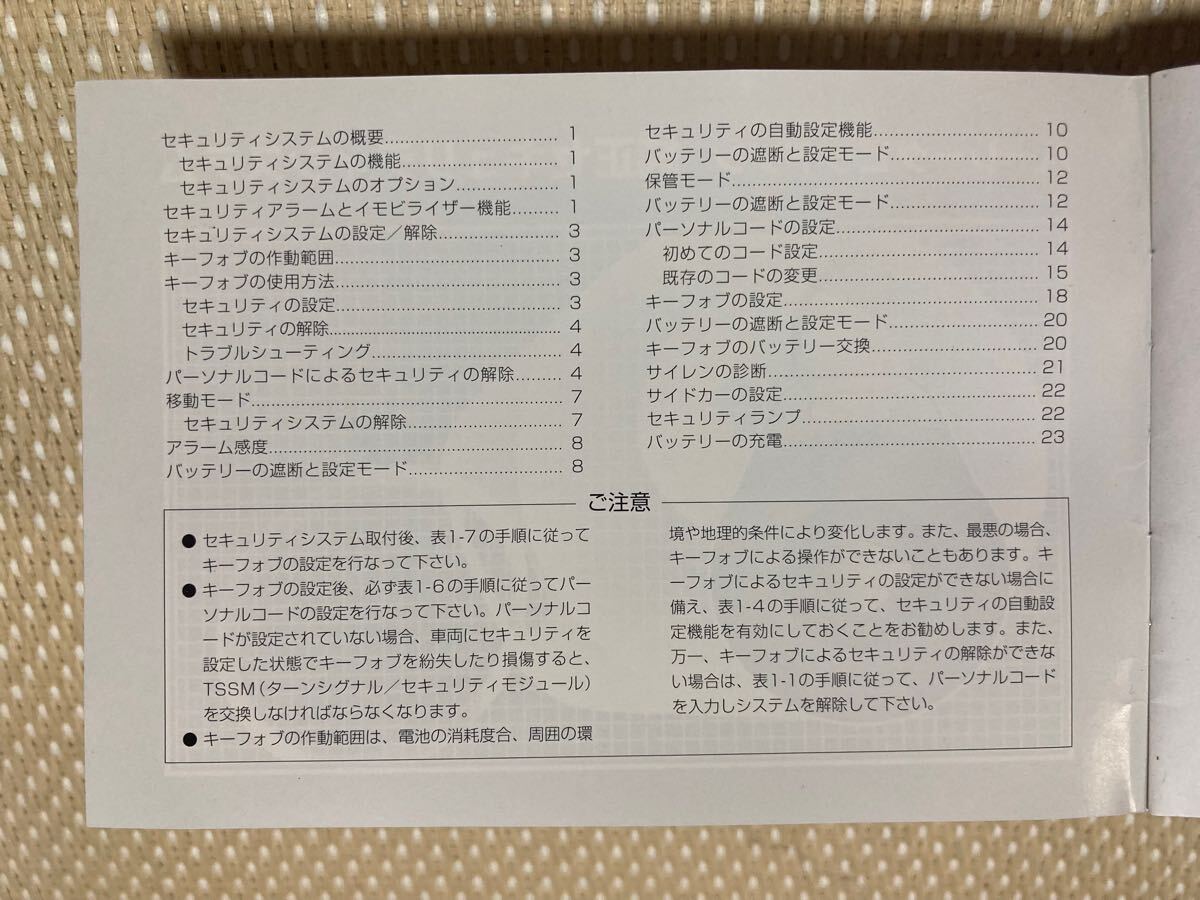 セキュリティシステムの概要.............................. 1
セキュリティシステムの機能........................... 1
セキュリティシステムのオプション.................. 1
セキュリティアラームとイモビライザー機能......... 1
セキュリティシステムの設定／解除..................... 3
キーフォブの作動範囲....................................... 3
キーフォブの使用方法....................................... 3
セキュリティの設定....................................... 3
セキュリティの解除........................................ 4
トラブルシューティング................................. 4
パーソナルコードによるセキュリティの解除......... 4
移動モード...................................................... 7
セキュリティシステムの解除........................... 7
アラーム感度................................................... 8
バッテリーの遮断と設定モード........................... 8
セキュリティの自動設定機能............................. 10
バッテリーの遮断と設定モード.......................... 10
保管モード..................................................... 12
バッテリーの遮断と設定モード.......................... 12
パーソナルコードの設定................................... 14
初めてのコード設定...................................... 14
既存のコードの変更...................................... 15
キーフォブの設定............................................ 18
バッテリーの遮断と設定モード.......................... 20
キーフォブのバッテリー交換............................. 20
サイレンの診断............................................... 21
サイドカーの設定............................................ 22
セキュリティランプ......................................... 22
バッテリーの充電............................................ 23
ご注意
● セキュリティシステム取付後、表1-7の手順に従って
キーフォブの設定を行なって下さい。
● キーフォブの設定後、必ず表1-6の手順に従ってパー
ソナルコードの設定を行なって下さい。パーソナルコ
ードが設定されていない場合、車両にセキュリティを
設定した状態でキーフォブを紛失したり損傷すると、
TSSM（ターンシグナル／セキュリティモジュール）
を交換しなければならなくなります。
● キーフォブの作動範囲は、電池の消耗度合、周囲の環
境や地理的条件により変化します。また、最悪の場合、
キーフォブによる操作ができないこともあります。キ
ーフォブによるセキュリティの設定ができない場合に
備え、表1-4の手順に従って、セキュリティの自動設
定機能を有効にしておくことをお勧めします。また、
万一、キーフォブによるセキュリティの解除ができな
い場合は、表1-1の手順に従って、パーソナルコード
を入力しシステムを解除して下さい。